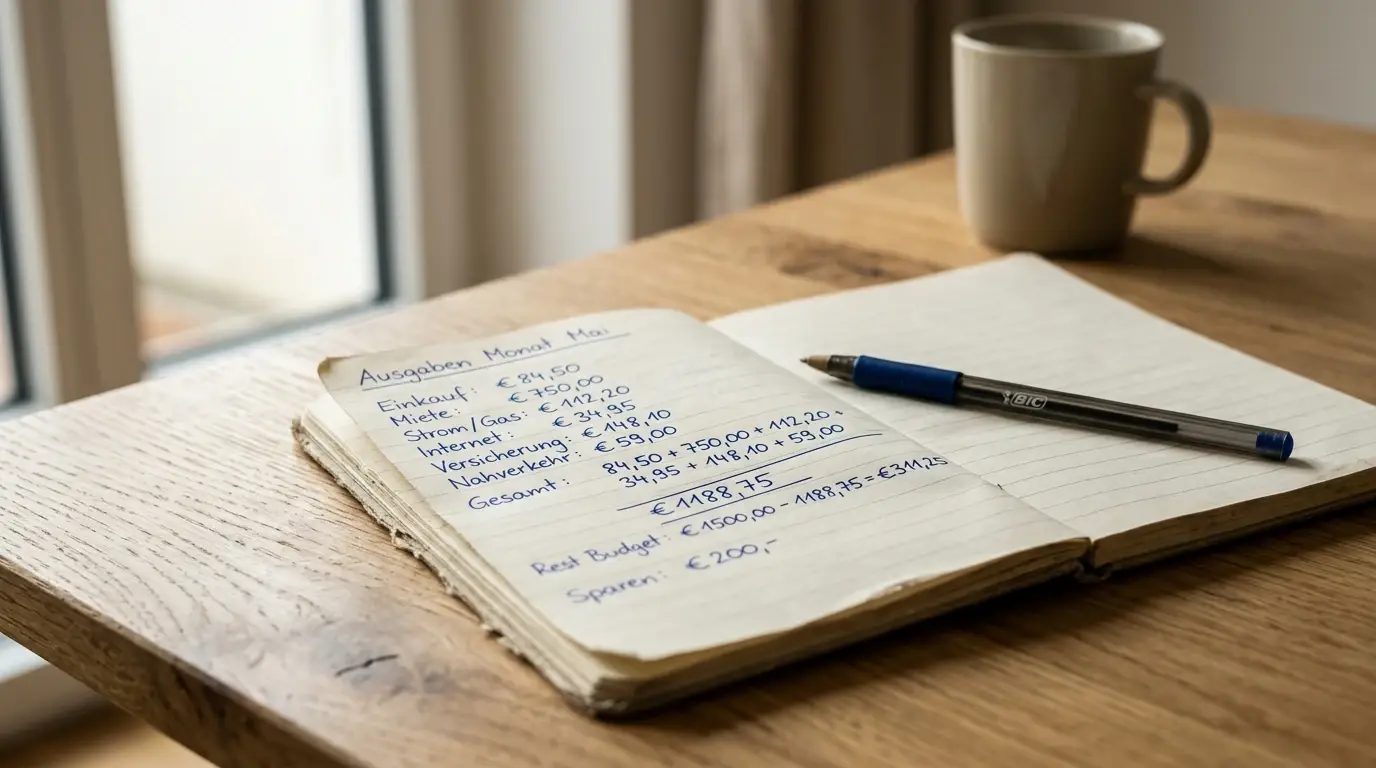 Ausgaben Monat Mai
Einkauf: €84,50
Miete: €750,00
Strom/Gas: €112,20
Internet: €34,95
Versicherung: €148,10
Nahverkehr: €59,00
Gesamt: 84,50 + 750,00 + 112,20 +
34,95 + 148,10 + 59,00
€1188,75
Rest Budget: €1500,00 - 1188,75 = €311,25
Sparen: €200,-
BIC